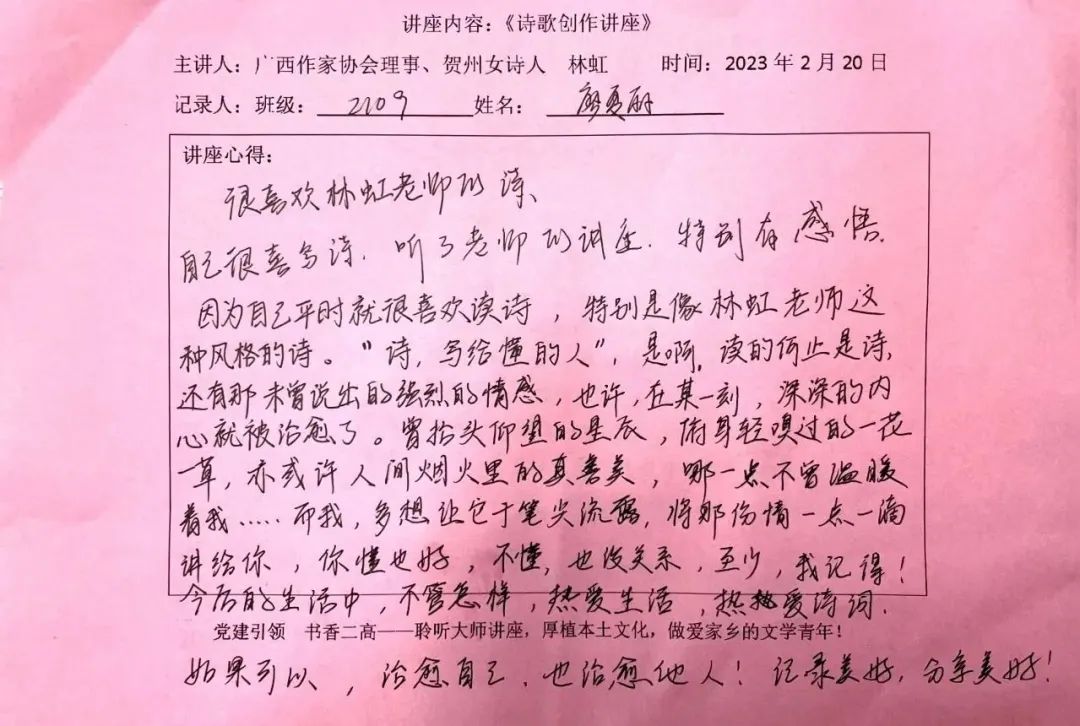 讲座内容：《诗歌创作讲座》
主讲人：广西作家协会理事、贺州女诗人 林虹 时间：2023年2月20日
记录人：班级：2109 姓名：廖夏丽
讲座心得：
很喜欢林虹老师的诗、
自己很喜写诗．听了老师的讲座．特别有感悟．
因为自己平时就很喜欢读诗，特别是像林虹老师这
种风格的诗。"诗，写给懂的人"，是啊，读的何止是诗，
还有那未曾说出的强烈的情感，也许，在某一刻，深深的内
心就被治愈了。曾抬头仰望的星辰，俯身轻嗅过的一花
一草，亦或许人间烟火里的真善美，哪一点不曾温暖
着我……而我，多想让它于笔尖流露，将那份情一点一滴
讲给你，你懂也好，不懂，也没关系，至少，我记得！
今后的生活中，不管怎样，热爱生活，热爱诗词．
党建引领 书香二高——聆听大师讲座，厚植本土文化，做爱家乡的文学青年！
如果可以，治愈自己．也治愈他人！记录美好，分享美好！